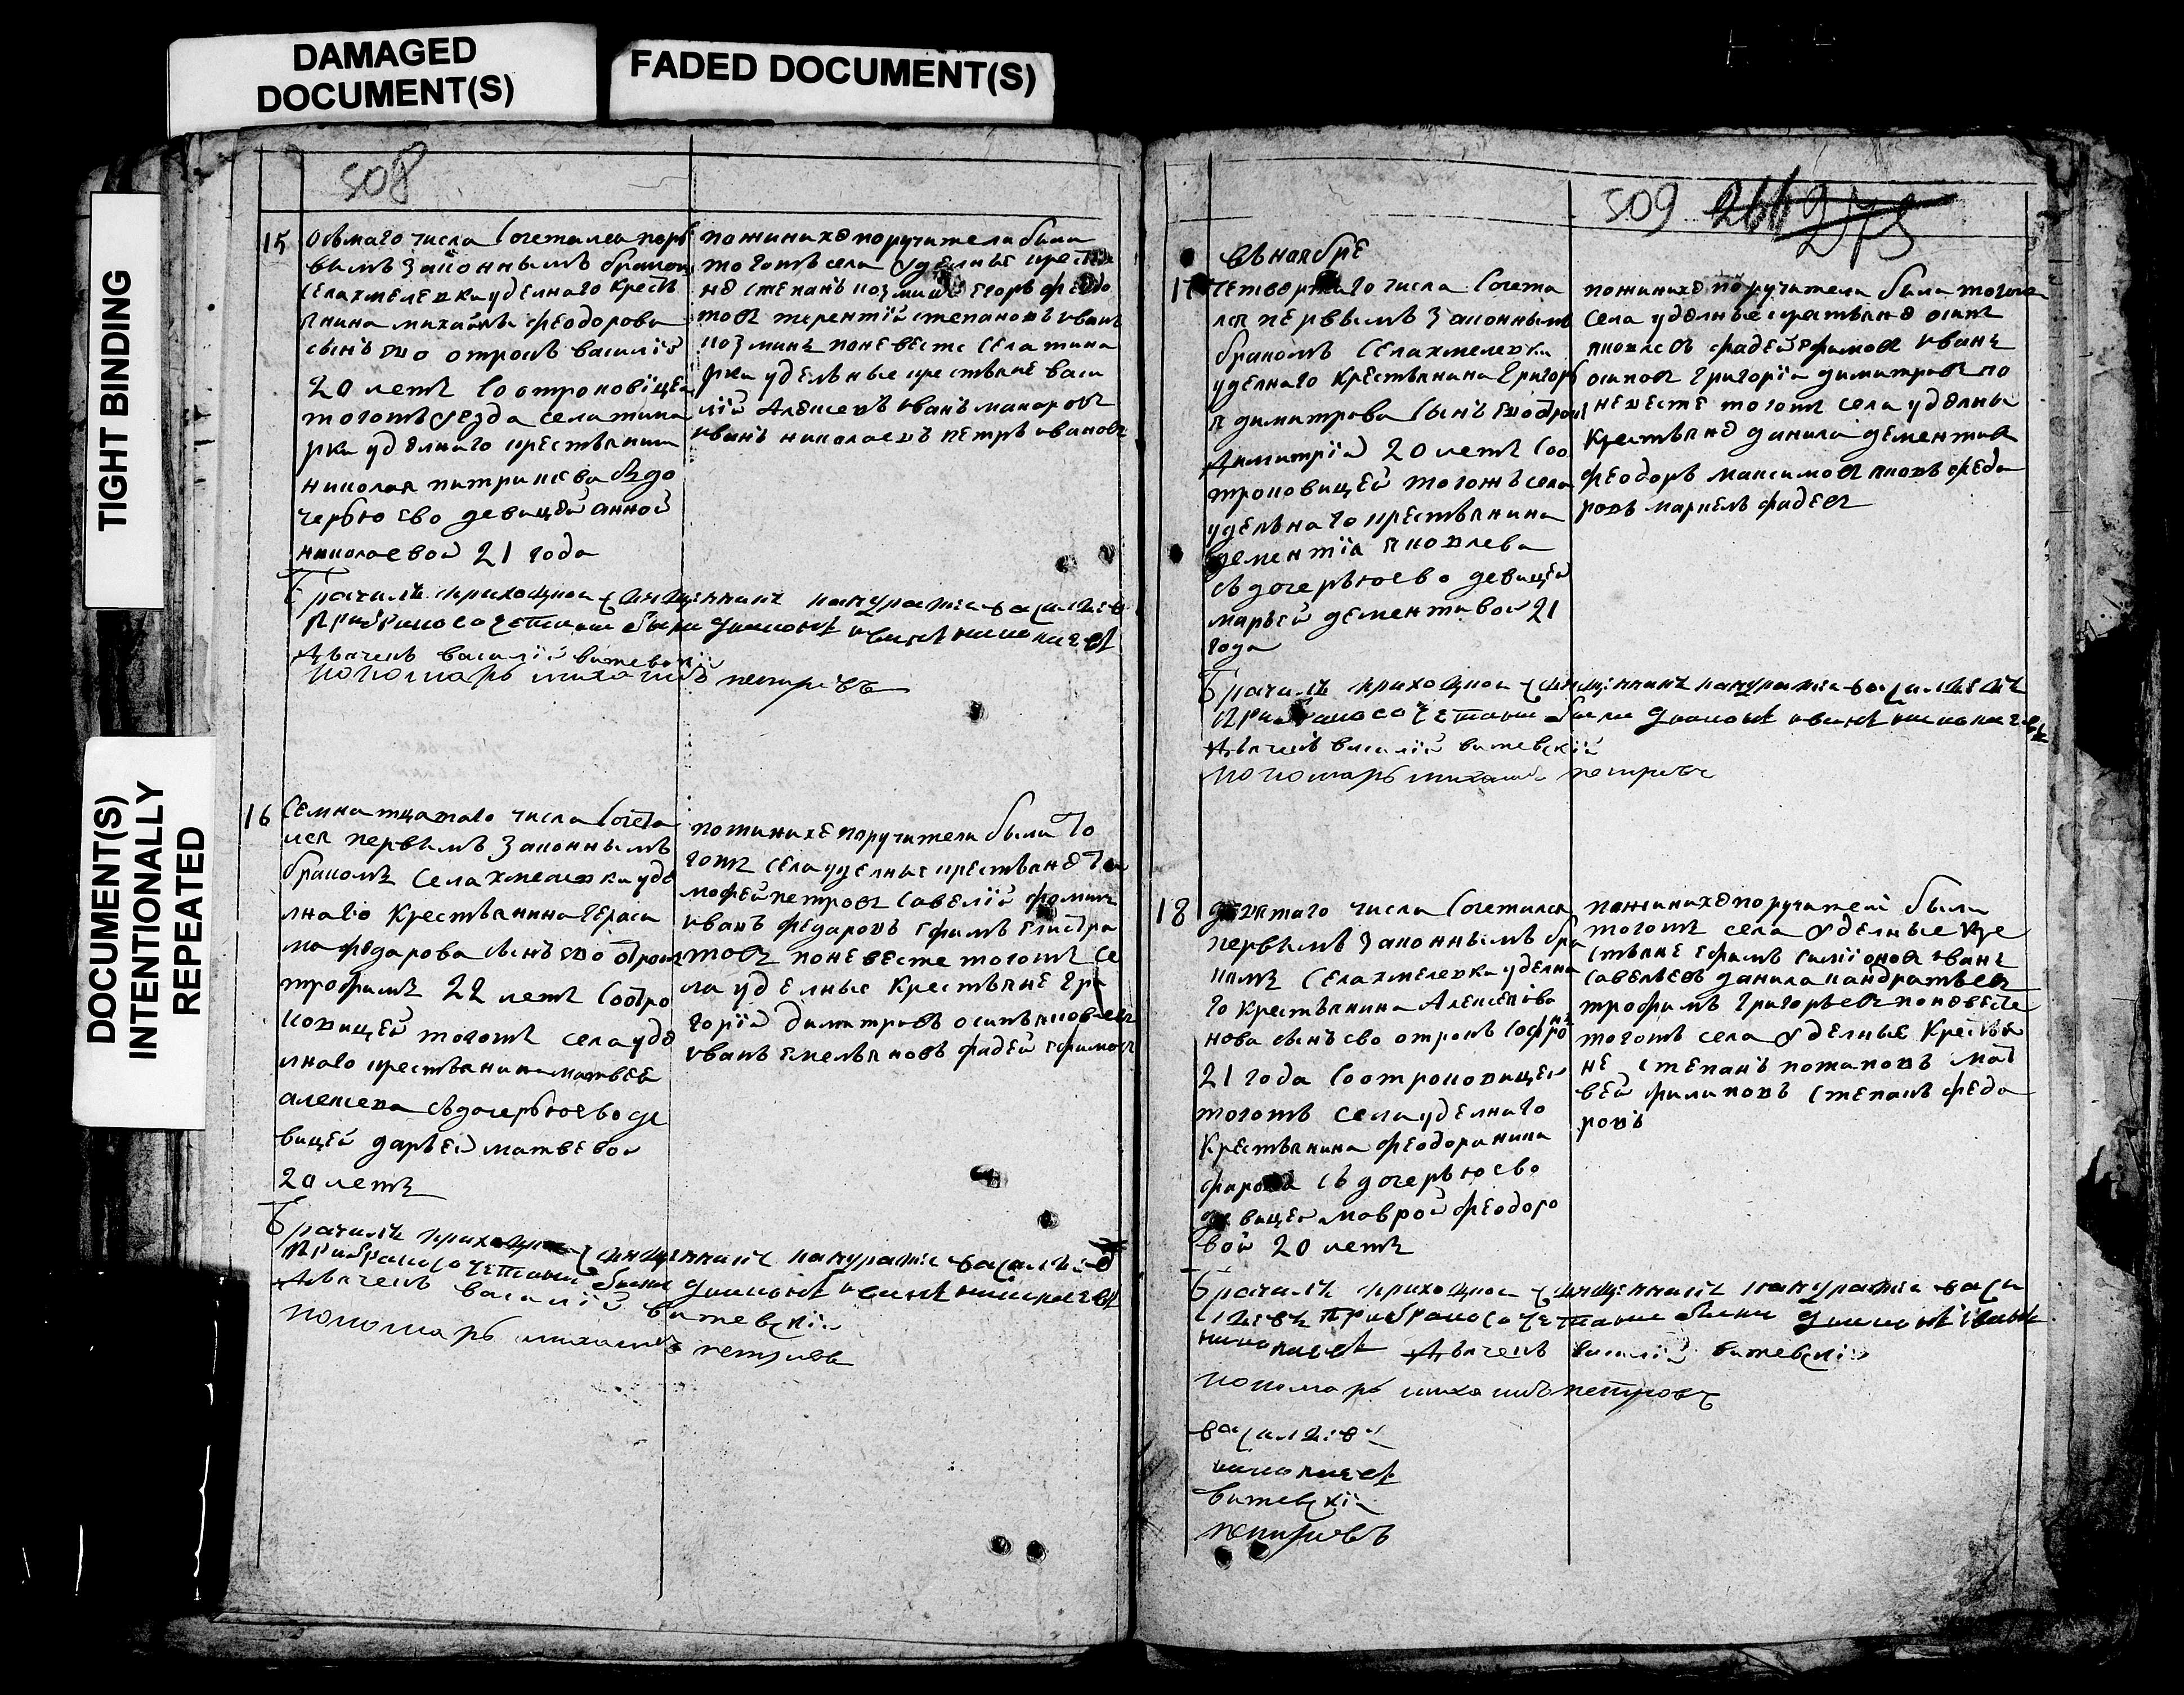 DAMAGED
DOCUMENT(S)
FADED DOCUMENT(S)
TIGHT BINDING
DOCUMENT(S)
INTENTIONALLY
REPEATED
508
15
Осьмаго числа Сочетался перъ
вымъ Законнымъ бракомъ
Села хмелевки уделнаго Кресть
янина михаила феодорова
сынъ ево отрокъ василий
20 летъ Со отроковицею
тогожъ уезда села тина
рки уделнаго крестьянина
николая
черью ево девицей анной
николаевой 21 года
по женихе поручители были
тогожъ села уделные кресть
не степанъ козминъ Егоръ федо
товъ терентий степановъ иванъ
козминъ по невесте Села тина
рки удельные крестьяне васи
лий Алексеевъ иванъ макаровъ
иванъ николаевъ петръ ивановъ
Брачилъ приходной священникъ василиевъ
При бракосочетании были диаконъ иванъ николаевъ
Дьячекъ василий витевский
пономарь михаилъ петровъ
16
Семнатцатаго числа Сочета
лся первымъ Законнымъ
бракомъ Села хмелевки уде
лнаго Крестьянина Гераси
ма федарова сынъ ево отрокъ
трофимъ 22 летъ Со отро
ковицей тогожъ села уде
лнаго крестьянина матвея
алексеева съ дочерью ево де
вицей дарьей матвевой
20 летъ
по женихе поручители были То
гожъ села уделные крестьяне Ти
мофей петровъ Савелий фоминъ
иванъ федаровъ Ефимъ Елистра
товъ по невесте тогожъ Се
ла уделные Крестьяне Гри
горий димитровъ осипъ яковлевъ
иванъ Емельяновъ фадей Ефимовъ
Брачилъ приходной священникъ василиевъ
При бракосочетании были диаконъ иванъ николаевъ
Дьячекъ василий витевский
пономарь михаилъ петровъ
509 266 273
Въ ноябре
17
Четвертаго числа Сочета
лся первымъ Законнымъ
бракомъ Села хмелевки
уделнаго Крестьянина Григорь
я димитрова Сынъ ево отрокъ
Димитрий 20 летъ Со о
троковицей тогожъ села
удельнаго крестьянина
дементия яковлева
съ дочерью ево девицей
марьей дементивой 21
года
по женихе поручители были тогожъ
села уделные крестьяне осипъ
яковлевъ фадей Ефимовъ иванъ
осиповъ Григорий димитровъ по
невесте тогожъ села уделны
Крестьяне данила дементиев
феодоръ максимовъ яковъ феда
ровъ маркелъ фадеевъ
Брачилъ приходной священникъ василиевъ
При бракосочетании были диаконъ иванъ николаевъ
Дьячекъ василий витевский
пономарь михаилъ петровъ
18
девятаго числа Сочетался
первымъ Законнымъ бра
комъ Села хмелевки уделна
го Крестьянина Алексея ива
нова сынъ ево отрокъ Софро
21 года Со отроковицей
тогожъ села уделнаго
Крестьянина феодора ники
фарова съ дочерью ево
девицей маврой феодоро
вой 20 летъ
по женихе поручители были
тогожъ села уделные Кре
стьяне Ефимъ Симионовъ иванъ
Савельевъ данила кандратьевъ
трофимъ Григорьевъ по невесте
тогожъ села уделные Крестья
не Степанъ потаповъ мат
вей филиповъ Степанъ феда
ровъ
Брачилъ приходной священникъ васи
лиевъ При бракосочетании были диаконъ иванъ
николаевъ Дьячекъ василий витевский
пономарь михаилъ петровъ
василиевъ
николаевъ
витевский
петровъ